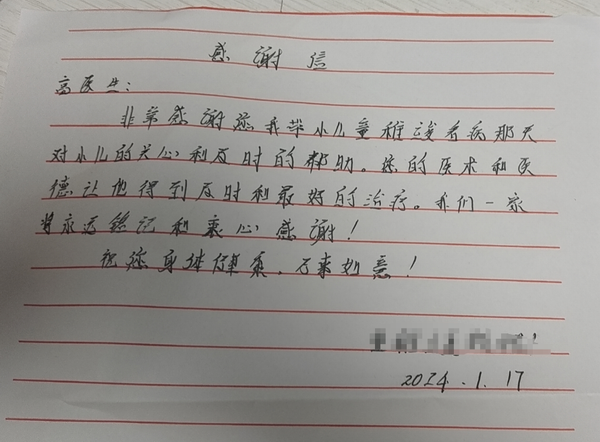 感谢信
高医生：
非常感谢您我毕小儿童稚浚看病那天
对小儿的关心和及时的帮助。您的医术和医
德让他得到及时和最好的治疗。我们一家
将永远铭记和衷心感谢！
祝您身体健康，万事如意！
2024.1.17